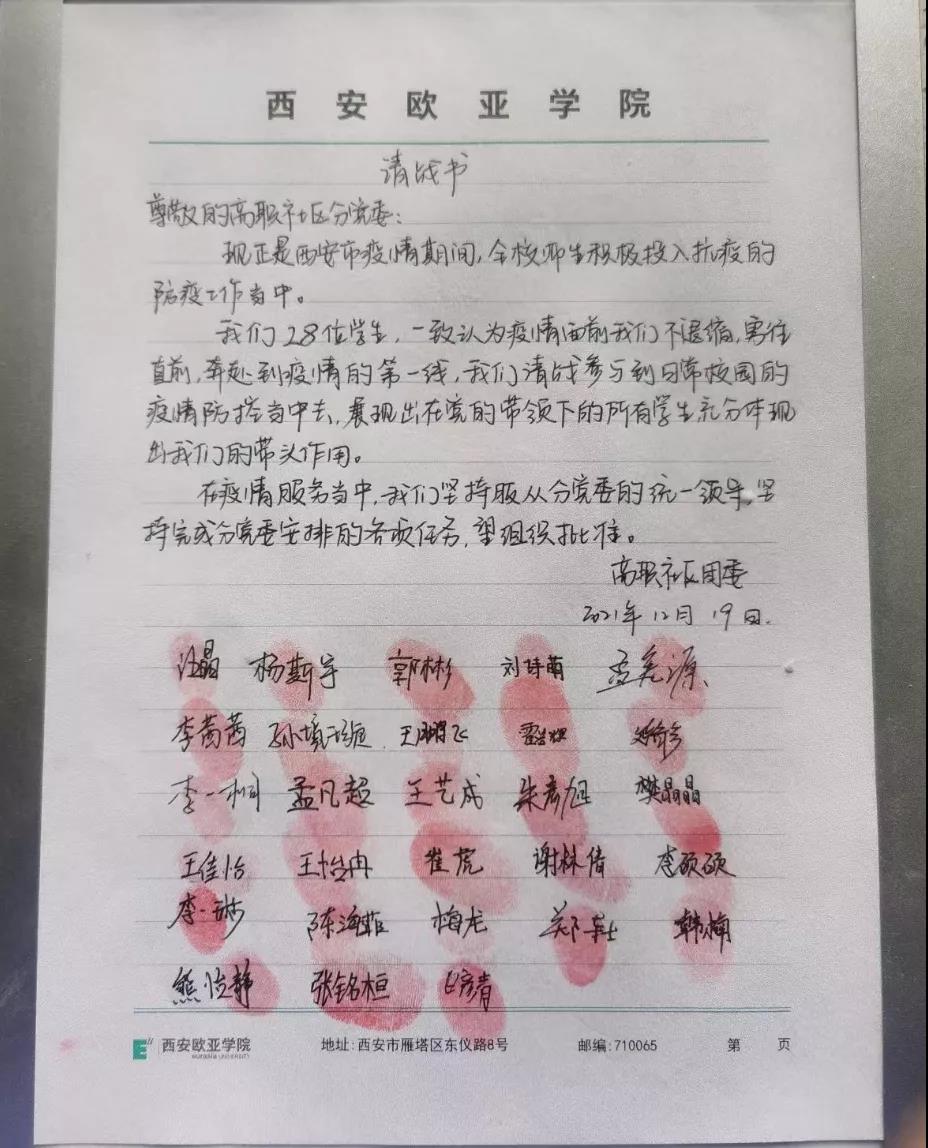 西安欧亚学院
请战书
尊敬的高职社区分党委：
现正是西安市疫情期间，全校师生积极投入抗疫的
防疫工作当中。
我们28位学生，一致认为疫情面前我们不退缩，勇往
直前，奔赴到疫情的第一线，我们请战参与到日常校园的
疫情防控当中去，展现出在党的带领下的所有学生充分体现
出我们的带头作用。
在疫情服务当中，我们坚持服从分党委的统一领导，坚
持完成分党委安排的各项任务，望组织批准。
高职社区团委
2021年12月19日.
汪晶 杨斯宇 郭彬彬 刘诗萌 孟羌源
李茜茜 王鹏飞
李一桐 孟凡超 王艺成 朱彦旭 樊晶晶
王佳怡 王怡冉 崔虎 谢林倩 李硕硕
李一琳 陈海菲 梅龙 韩楠
熊怡静 张铭桓
西安欧亚学院 地址：西安市雁塔区东仪路8号 邮编：710065 第 页